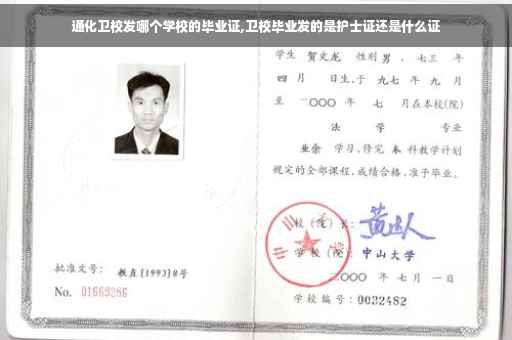 通化卫校发哪个学校的毕业证,卫校毕业发的是护士证还是什么证
学生 贺文龙 性别 男 、七三 年
四 月 日生,于 九七 年 九 月
至 二〇〇〇 年 七 月在本校(院)
法 学 专业
业余 学习,修完 本 科教学计划
规定的全部课程,成绩合格,准予毕业。
校(院)长:
学校(院): 中山大学
二〇〇〇 年 七 月 一 日
学校编号: 0032482
批准文号: 教直[1993]8号
No. 01669286